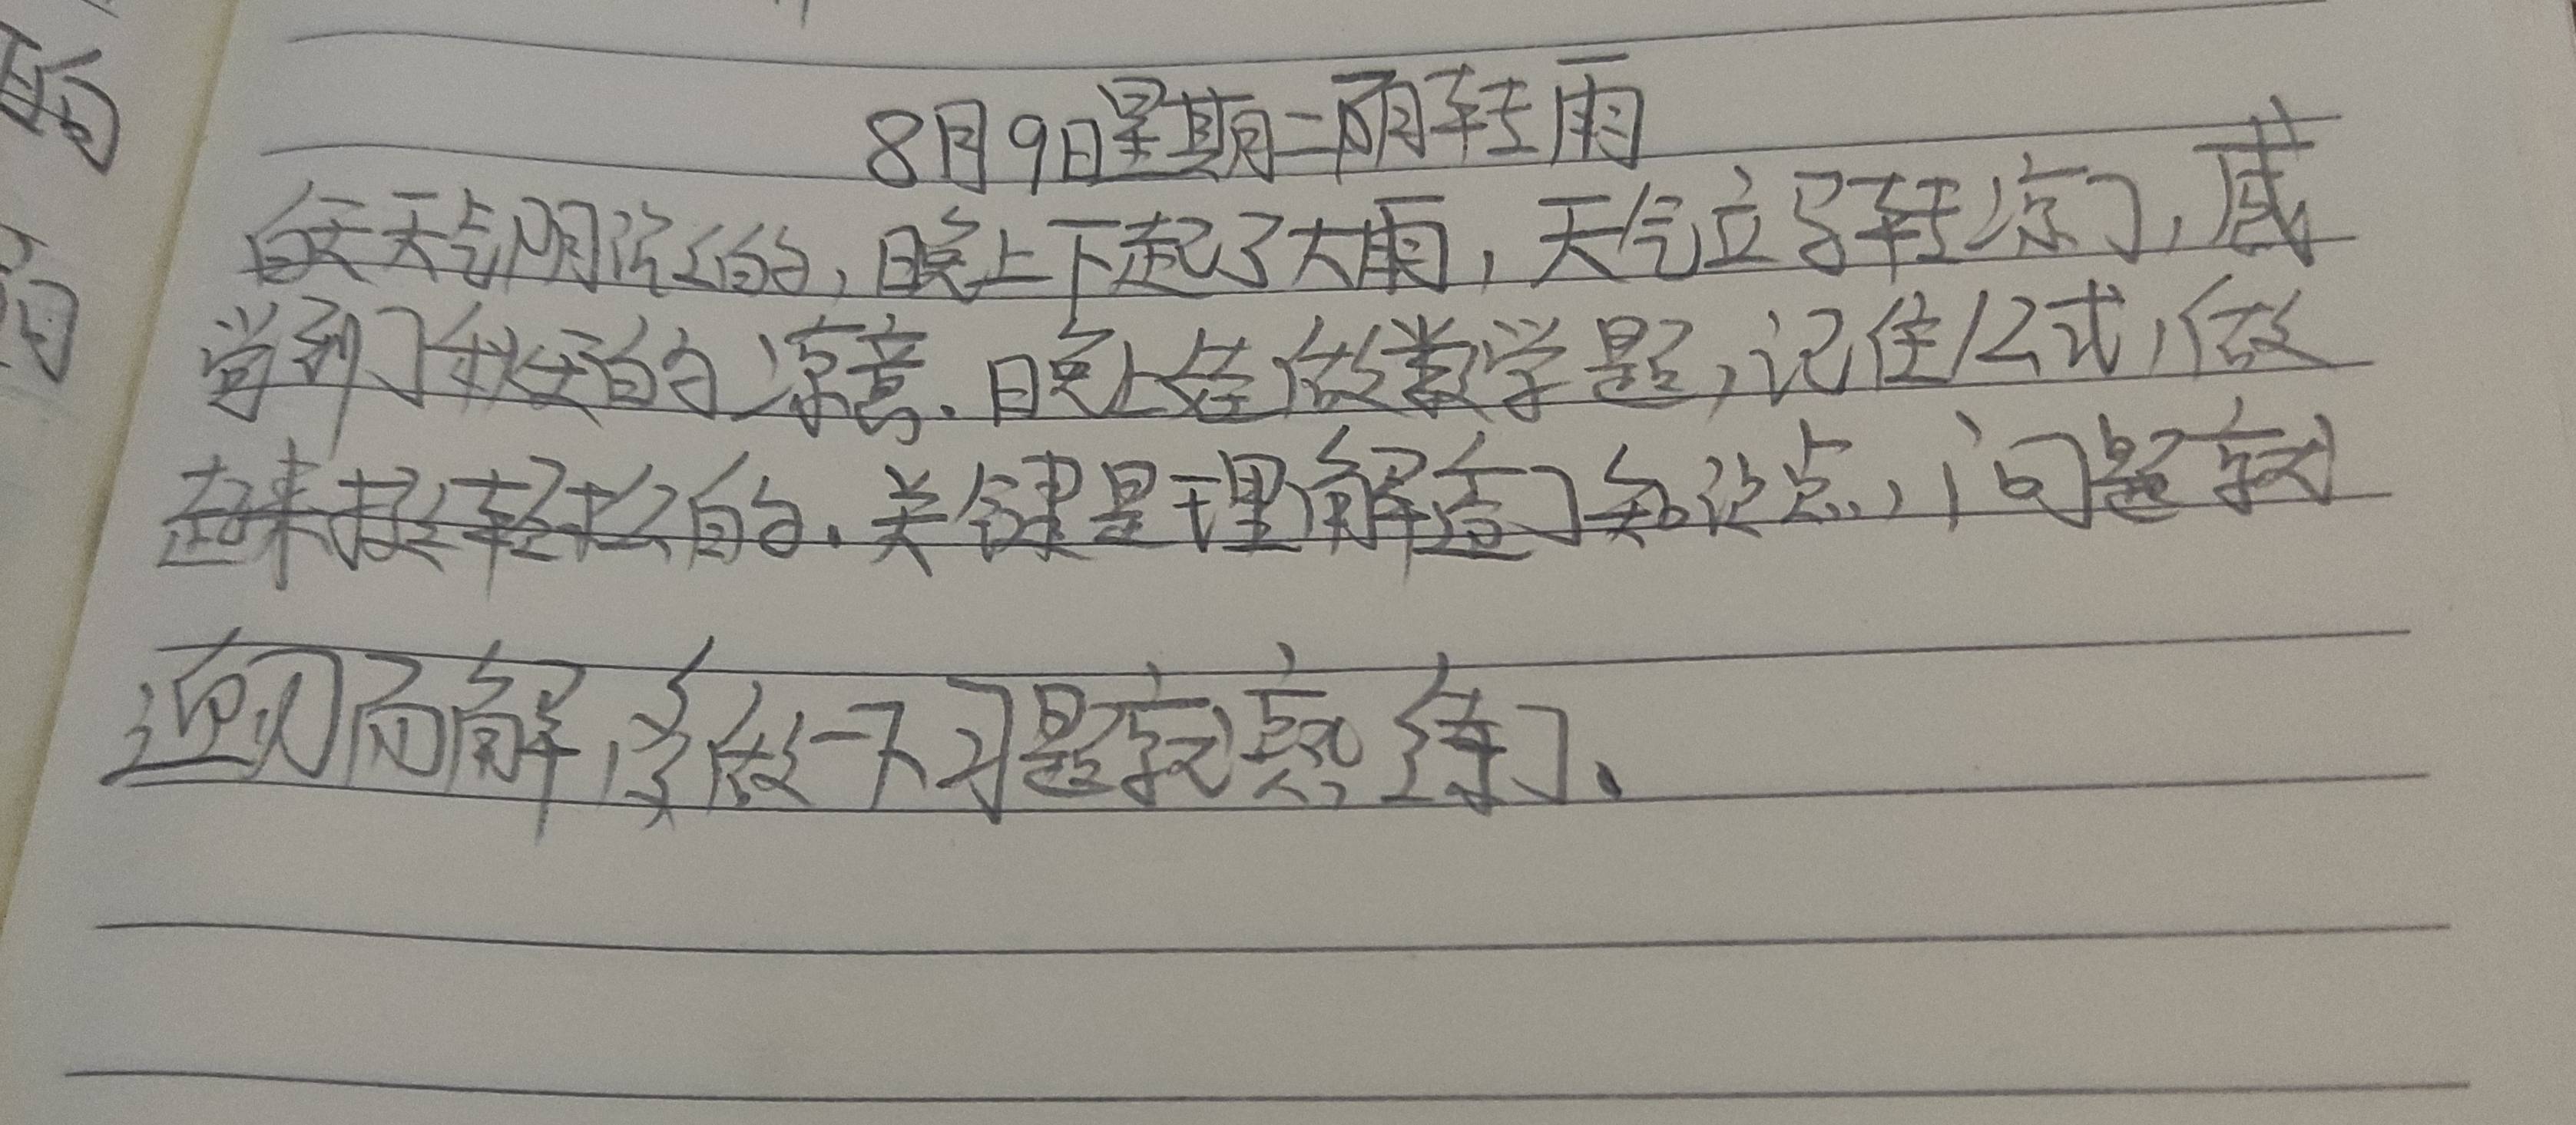 8月9日星期二阴转雨
白天天气阴沉的,晚上下起了大雨,天气立马转凉了,感
觉到了秋天的凉意.晚上在做数学题,记住公式,做
起来挺轻松的.关键是理解透了知识点,问题就
迎刃而解,多做一下习题就熟练了.